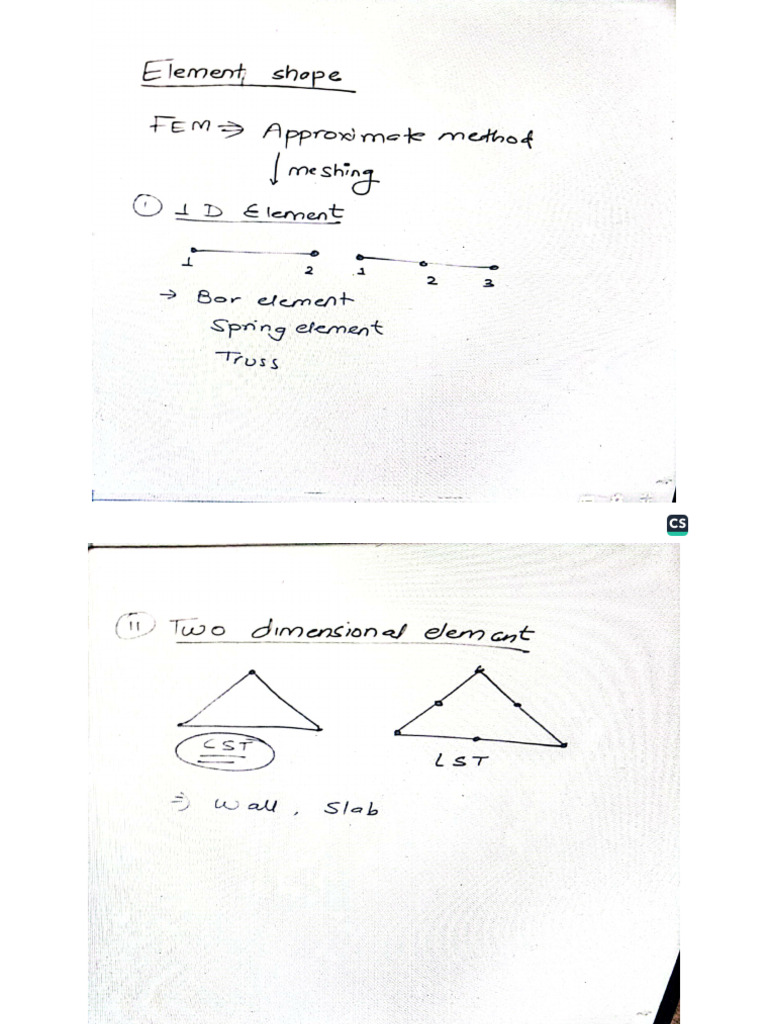 Element shape
FEM ⇒ Approximate method
↓ meshing
① 1 D Element
1 2 1 2 3
→ Bar element
Spring element
Truss
CS
(ii) Two dimensional element
CST LST
⇒ Wall, Slab